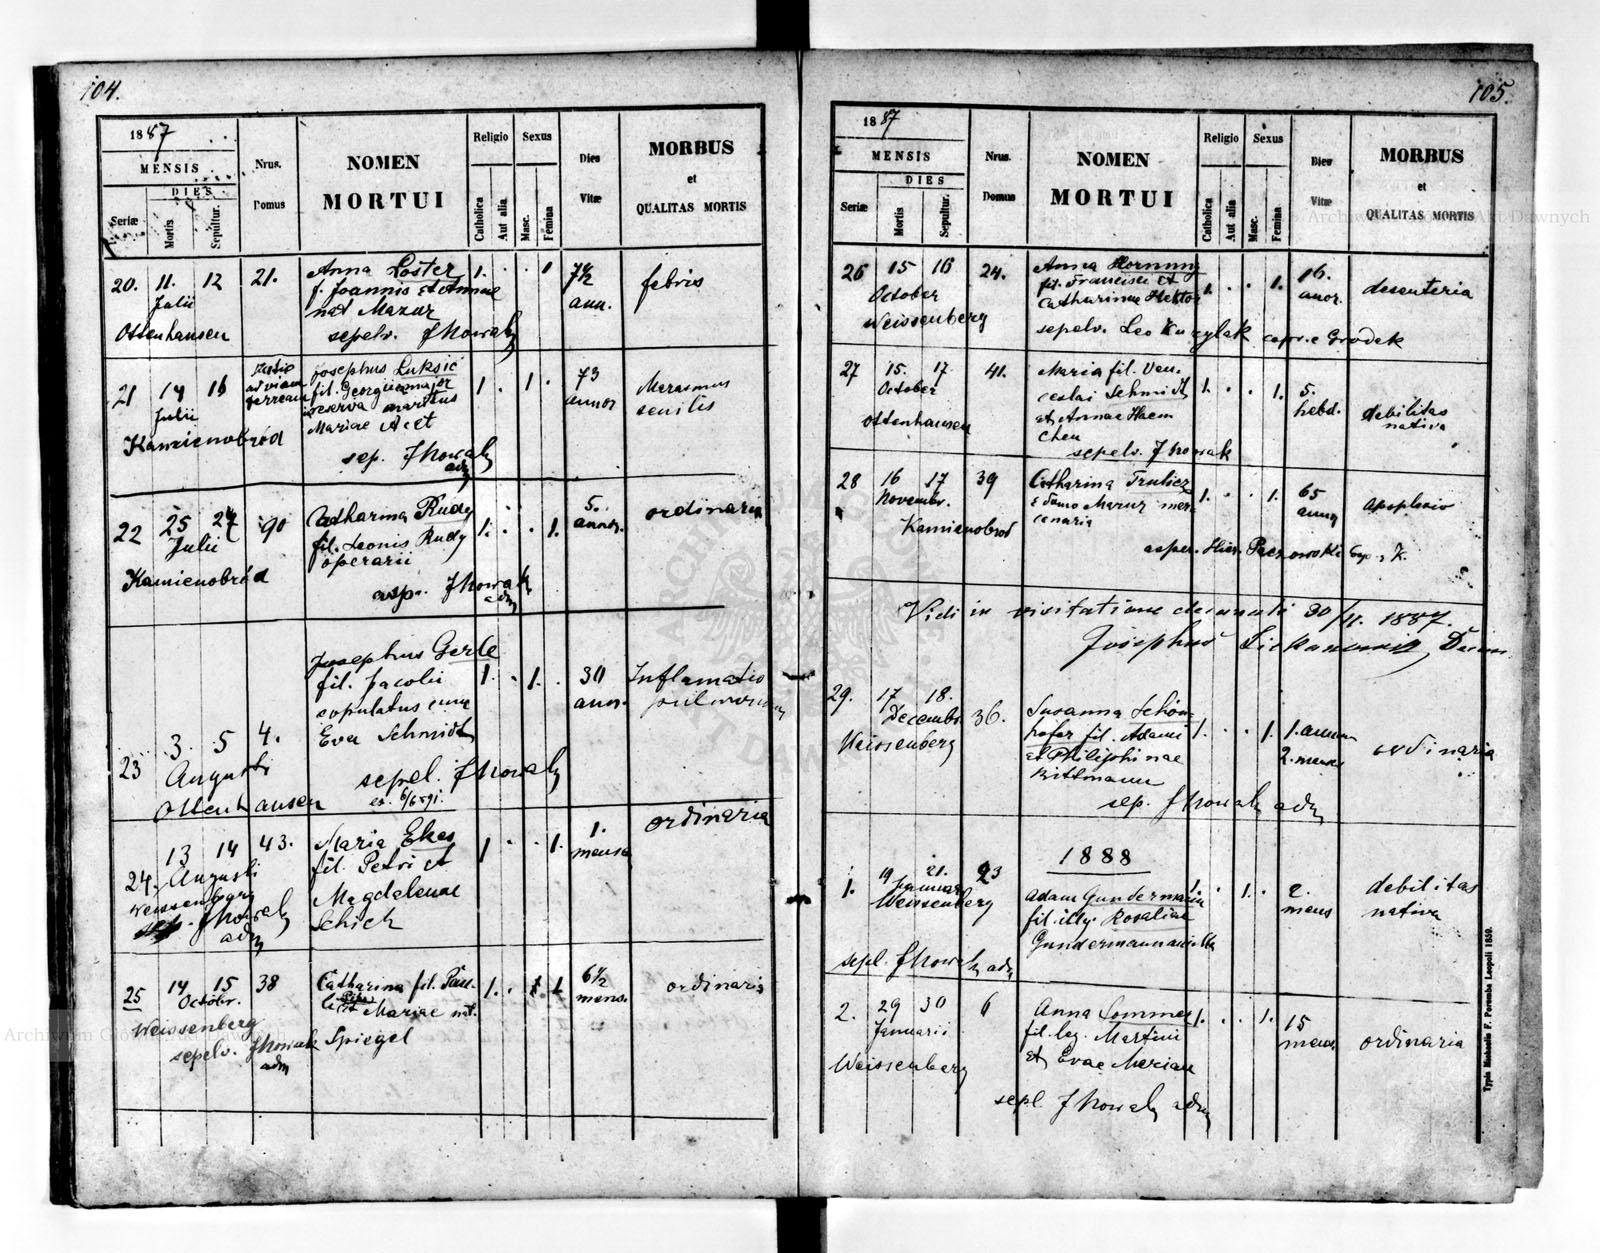 104.
1887
MENSIS
DIES
Seriæ
Mortis
Sepultur.
Nrus.
Domus
NOMEN
MORTUI
Religio
Catholica
Aut alia
Sexus
Masc.
Femina
Dies
Vitæ
MORBUS
et
QUALITAS MORTIS
20. 11. 12 21. Anna Loster 1. . . 1 7½ febris
Julii f. Joannis et Annae ann.
nat Mazur
Ottenhausen sepelv. JNowak
21 14 16 ad viam Josephus Luksić 1 . 1 . 73 Marasmus
Julii ferream fil. Georgii annor senilis
reserva maritus
Mariae
Kamienobród
sep. JNowak
adm
22 25 27 90 Catharina Rudy 1. . . 1. 5. ordinaria
Julii fil. Leonis Rudy annor.
operarii
Kamienobród
asp. JNowak
adm
Josephus Gerle
fil. Jacobi 1. . 1. . 30 Inflamatio
copulatus cum ann. pulmonum
23 3. 5 4. Eva Schmidt
Augusti
sepel. JNowak
Ottenhausen
24. 13 14 43. Maria Ekes 1 . . 1. 1. ordinaria
Augusti fil. Petri et mense
Weissenberg Magdalenae
sep. JNowak Schick
adm
25 14 15 38 Catharina fil. Pau- 1. . 1 6½ ordinaria
Octobr. li et Mariae nat. mens.
Weissenberg Spiegel
sepelv. JNowak
adm
105.
1887
MENSIS
DIES
Seriæ
Mortis
Sepultur.
Nrus.
Domus
NOMEN
MORTUI
Religio
Catholica
Aut alia
Sexus
Masc.
Femina
Dies
Vitæ
MORBUS
et
QUALITAS MORTIS
26 15 16 24. Anna Hornung 1. . . 1. 16. desenteria
October fil. Francisci et annor.
Catharinae Hektor
Weissenberg
sepelv. Leo Kuzylak coop. e Grodek
27 15. 17. 41. Maria fil. Ven- 1. . . 1. 5. debilitas
October ceslai Schmidt hebd. nativa
Ottenhausen et Annae Haem
chen
sepelv. JNowak
28 16 17 39 Catharina 1. . . 1. 65
Novembr. e domo Mazur mer- annor
cenaria
Kamienobrod
asper. Hier.
Vidi in visitatione decanali 30/11. 1887.
Josephus
29. 17 18. 36. Susanna Schön- 1. . . 1. 1. annum ordinaria
Decembr. hofer fil. Adami 2. mens
Weissenberg et Philiphinae
Bittmann
sep. JNowak adm
1888
1. 19 21. 23 Adam Gundermann 1. . 1. . 2. debilitas
Januar fil. illg. Rosaliae mens nativa
Weissenberg Gundermann
sepl. JNowak adm
2. 29 30 6 Anna Sommer 1. . . 1. 15 ordinaria
Januarii fil. leg. Martini mens.
Weissenberg et Evae Merian
sepl. JNowak adm
Typis Michaelis F. Poremba Leopoli 1859.
Archiwum Główne Akt Dawnych
Archiwum Główne Akt Dawnych